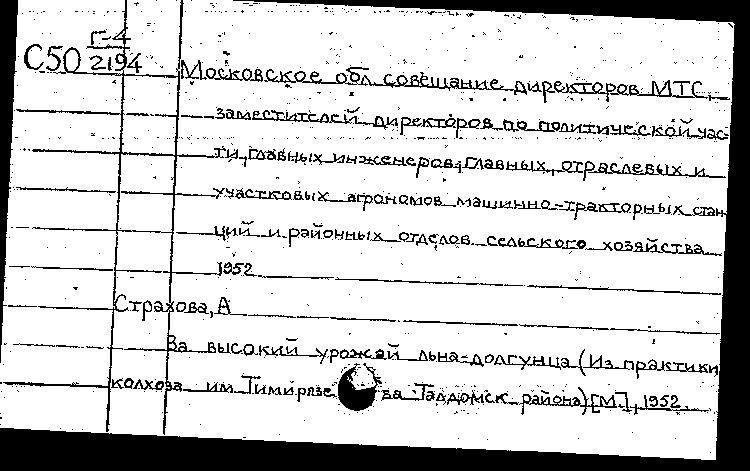 Г-4
С50 2194
Московское обл. совещание директоров МТС,
заместителей директоров по политической час-
ти, главных инженеров, главных, отраслевых и
участковых агрономов машинно-тракторных стан-
ций и районных отделов сельского хозяйства
1952
Страхова, А
За высокий урожай льна-долгунца (Из практики
колхоза им Тимирязева Талдомск района) [М.], 1952.